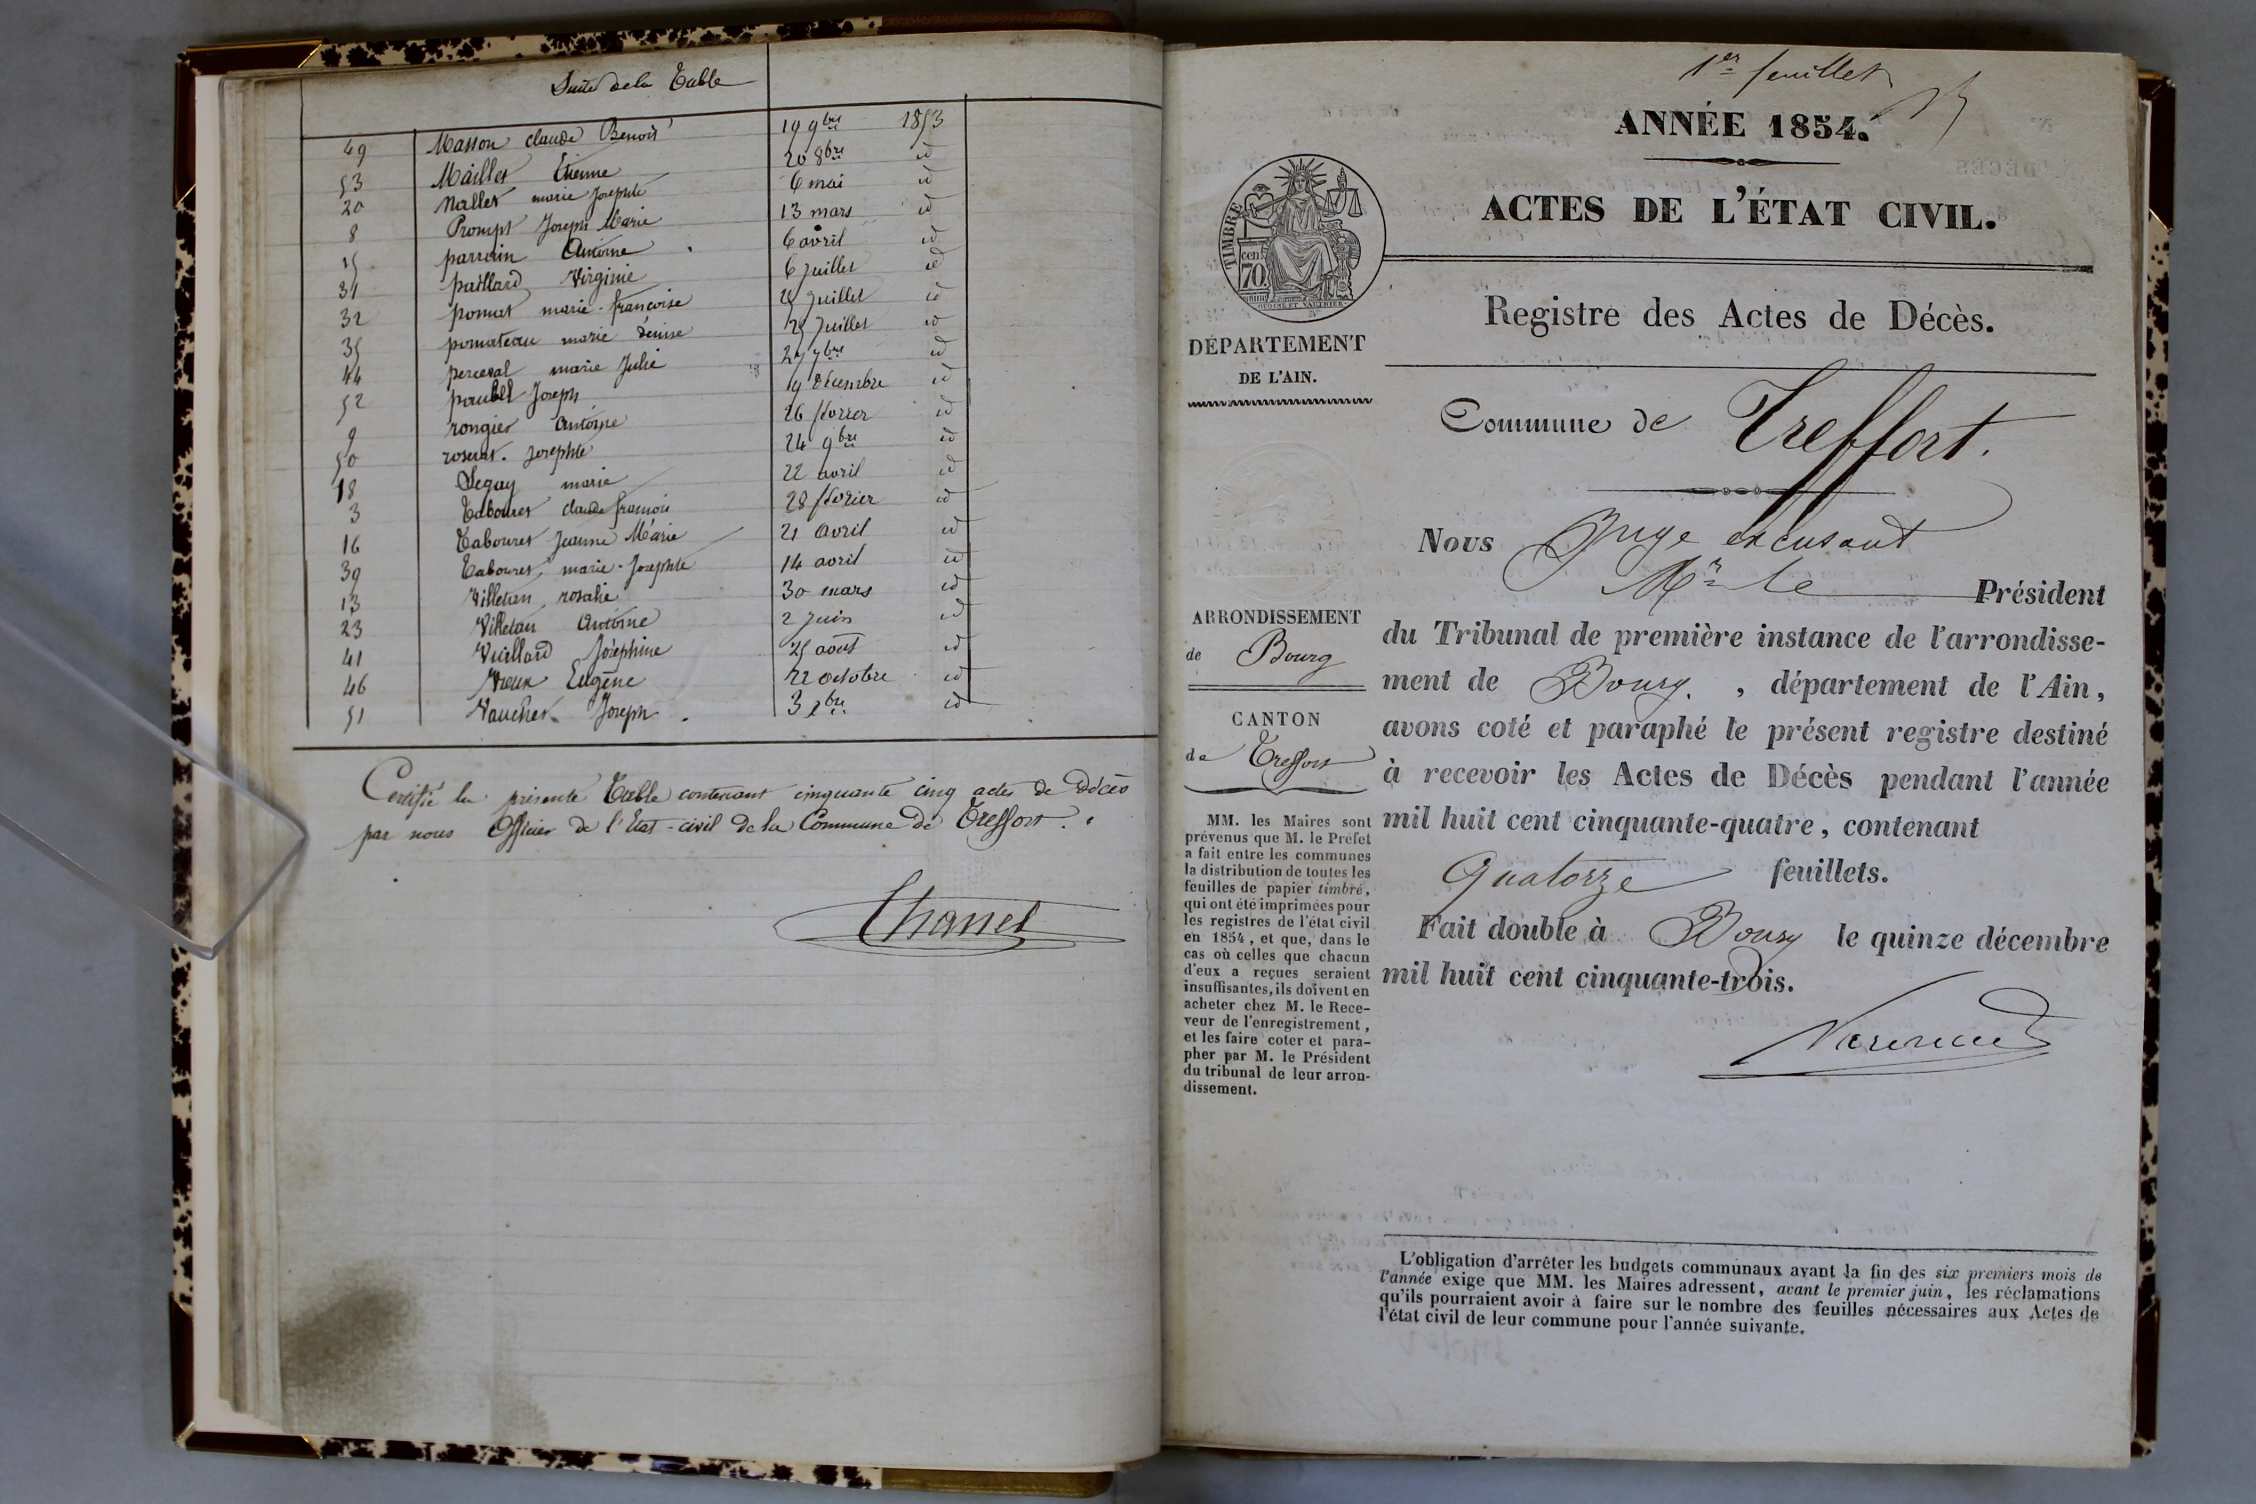 Suite de la Table
49 Masson claude Benoit 19 9bre 1853
53 Maillet Etienne 20 8bre id
20 Nallet marie Josephte 6 mai id
8 Prompt Joseph Marie 13 mars id
15 parrain Antoine 6 avril id
31 paillard Virginie 6 Juillet id
32 pomat marie-françoise Juillet id
35 pomateau marie denise Juillet id
44 perceval marie Julie 7bre id
52 Joseph 19 décembre id
9 rongier Antoine 26 id
50 roserat. Josephte 24 9bre id
18 Seguy marie 22 avril id
3 Tabouret claude françois 28 février id
16 Tabouret Jeanne Marie 21 avril id
39 Tabouret, marie-Josephte 14 avril id
13 Villetan rosalie 30 mars id
23 Villetan Antoine 2 Juin id
41 Vuillard Joséphine 25 août id
46 Vieux Eugène 22 octobre id
51 Vaucher Joseph. 3 id
Certifié la présente Table contenant cinquante cinq actes de Décès
par nous Officier de l'Etat-civil de la Commune de Treffort.
Chanel
1er feuillet
ANNÉE 1854.
ACTES DE L'ÉTAT CIVIL.
TIMBRE
cen
70
Registre des Actes de Décès.
DÉPARTEMENT
DE L'AIN.
Commune de Treffort.
Nous Juge excusant
Mr le Président
du Tribunal de première instance de l'arrondisse-
ment de Bourg. , département de l'Ain,
avons coté et paraphé le présent registre destiné
à recevoir les Actes de Décès pendant l'année
mil huit cent cinquante-quatre, contenant
Quatorze feuillets.
Fait double à Bourg le quinze décembre
mil huit cent cinquante-trois.
ARRONDISSEMENT
de Bourg
CANTON
de Treffort
MM. les Maires sont
prévenus que M. le Préfet
a fait entre les communes
la distribution de toutes les
feuilles de papier timbré,
qui ont été imprimées pour
les registres de l'état civil
en 1854, et que, dans le
cas où celles que chacun
d'eux a reçues seraient
insuffisantes, ils doivent en
acheter chez M. le Rece-
veur de l'enregistrement,
et les faire coter et para-
pher par M. le Président
du tribunal de leur arron-
dissement.
L'obligation d'arrêter les budgets communaux avant la fin des six premiers mois de
l'année exige que MM. les Maires adressent, avant le premier juin, les réclamations
qu'ils pourraient avoir à faire sur le nombre des feuilles nécessaires aux Actes de
l'état civil de leur commune pour l'année suivante.